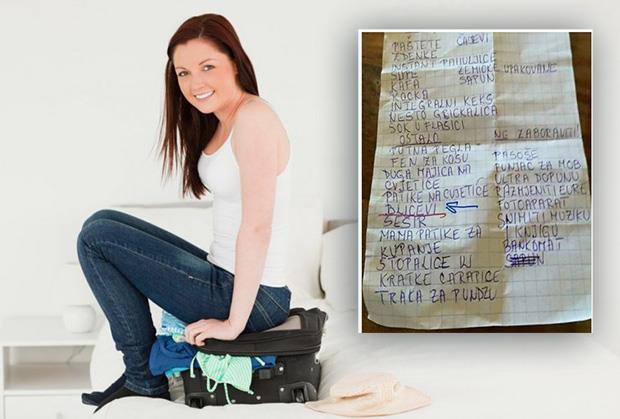 PAŠTETE ČAJEVI
ZDENKE
INSTANT PAHULJICE
SUPE ZEMIČKE UPAKOVANE
KAFA SAPUN
KOCKA
INTEGRALNI KEKS
NEŠTO GRICKALICA
SOK U FLAŠICI
OSTALO NE ZABORAVITI!
PUTNA PEGLA PASOŠE
FEN ZA KOSU PUNJAČ ZA MOB.
DUGA MAJICA NA ULTRA DOPUNU
CVJETIĆE RAZMJENITI EURE
PATIKE NA CVJETIĆE FOTOAPARAT
SNIMITI MUZIKU
ŠEŠIR I KNJIGU
MAMA PATIKE ZA BANKOMAT
KUPANJE
STOPALICE ILI
KRATKE ČARAPICE
TRAKA ZA PUNĐU